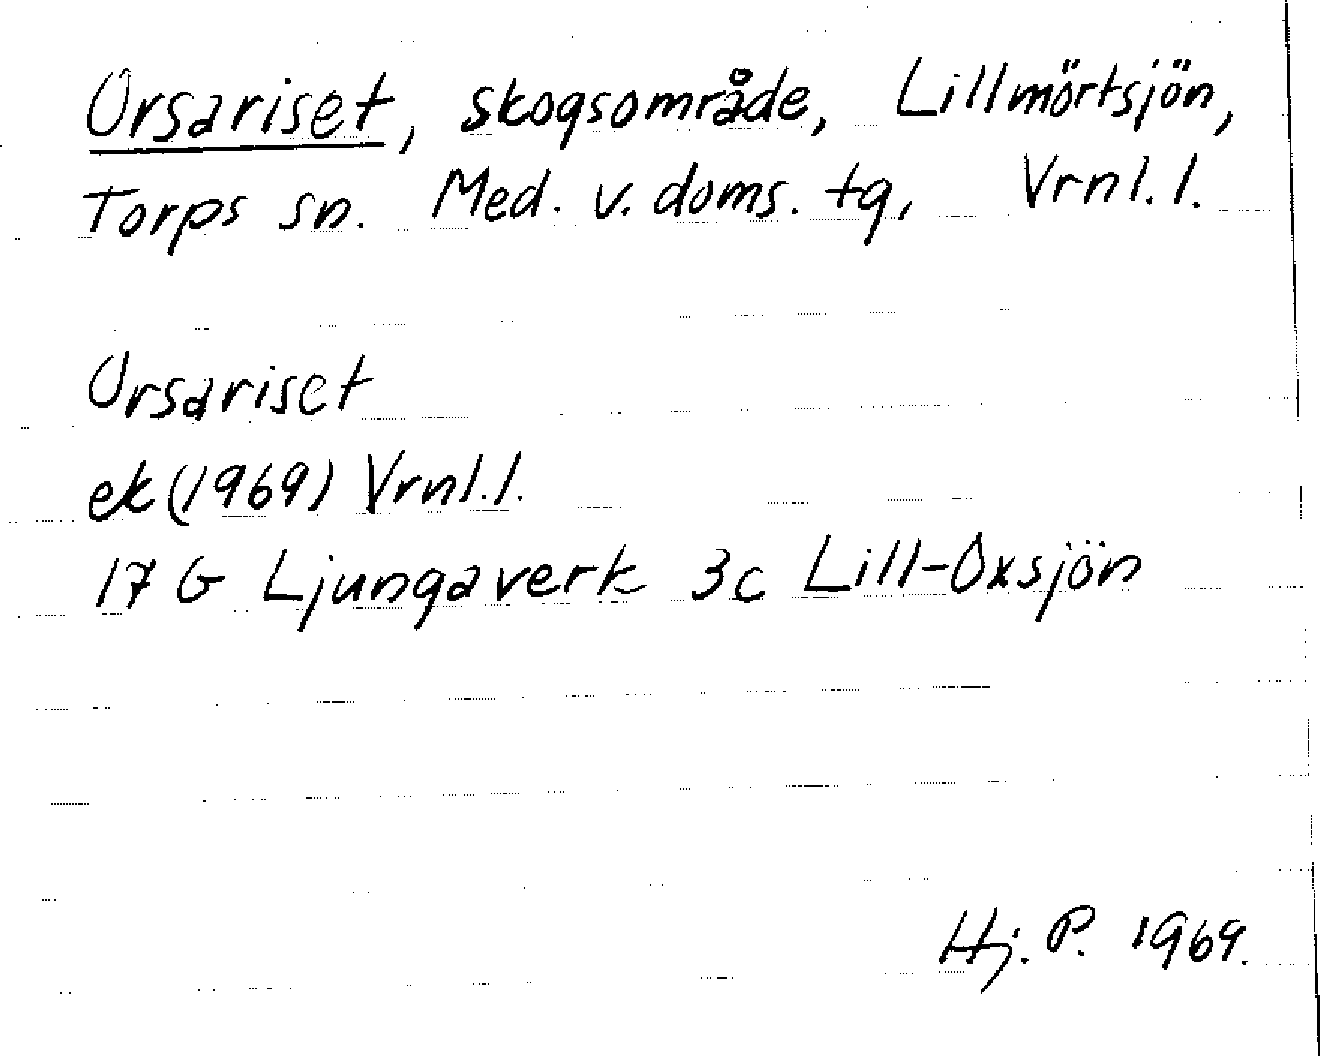 Orsariset, skogsområde, Lillmörtsjön,
Torps sn. Med. v. doms. tg, Vrnl. l.
Orsariset
ek (1969) Vrnl. l.
17 G Ljungaverk 3c Lill-Oxsjön
Hj. P. 1969.